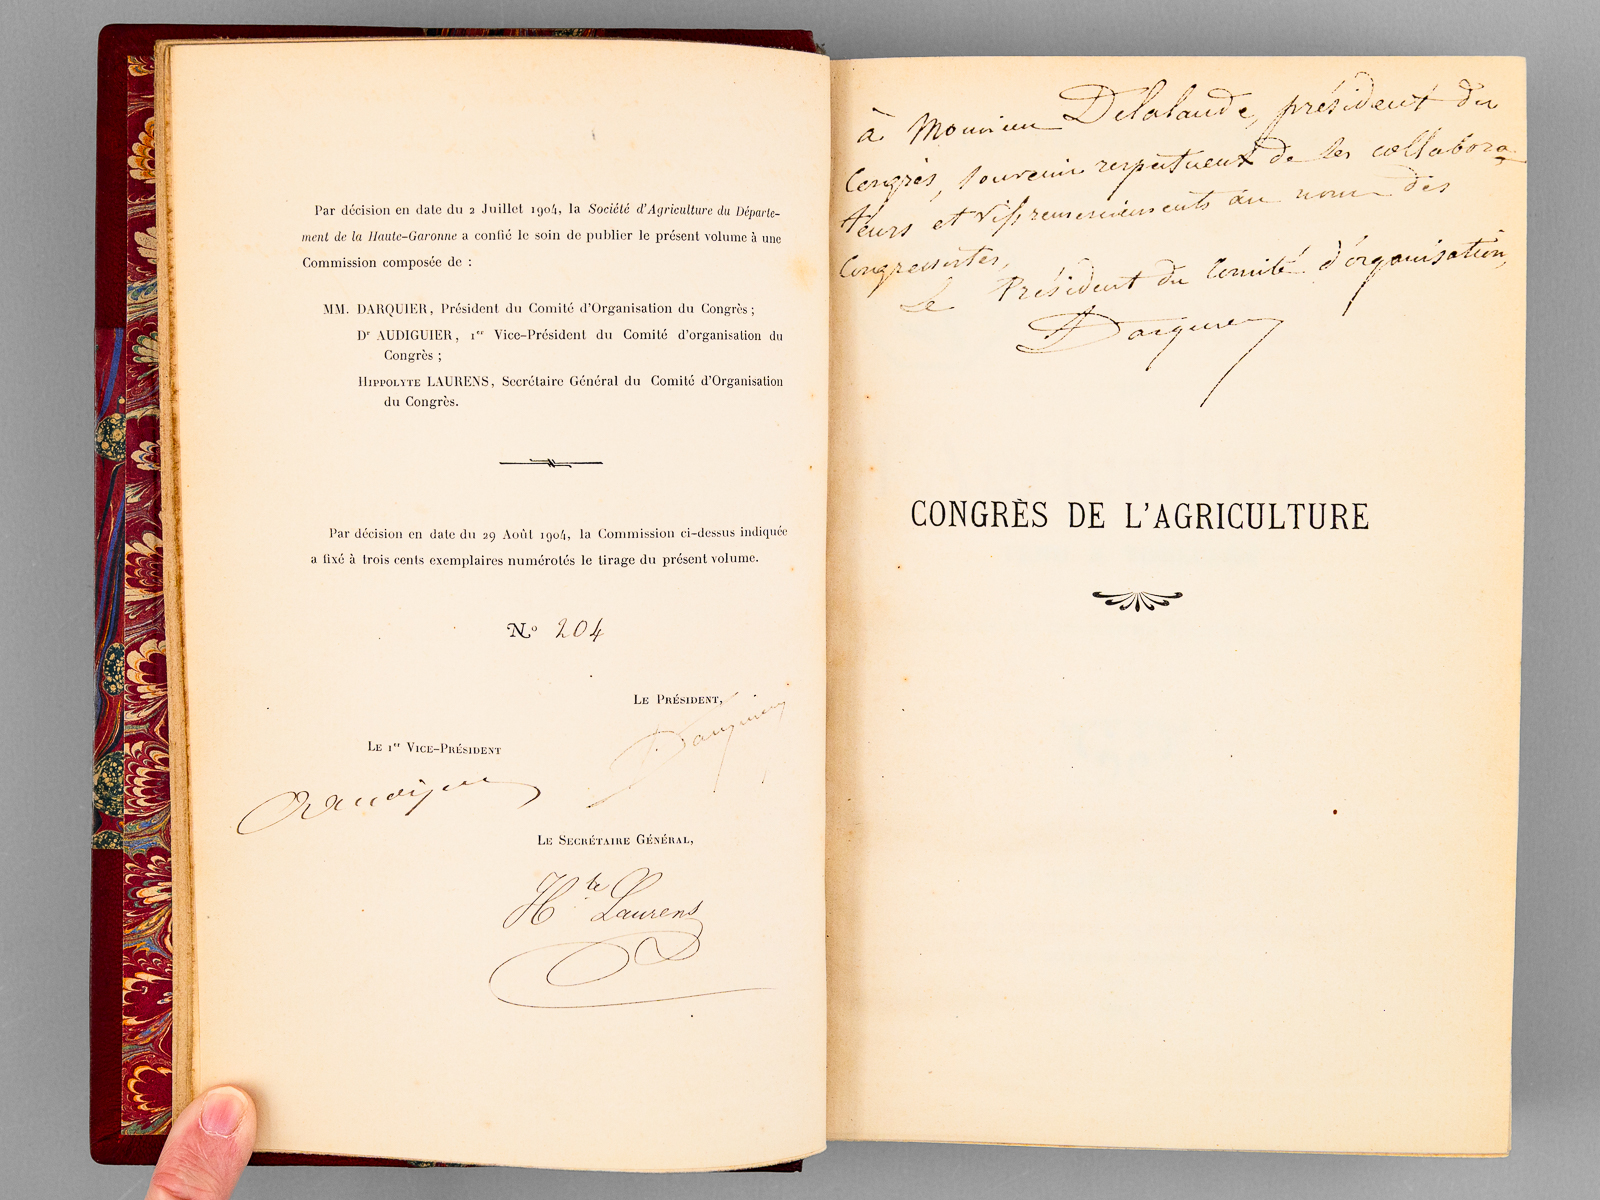 Par décision en date du 2 Juillet 1904, la Société d'Agriculture du Départe-
ment de la Haute-Garonne a confié le soin de publier le présent volume à une
Commission composée de :
MM. DARQUIER, Président du Comité d'Organisation du Congrès ;
Dr AUDIGUIER, 1er Vice-Président du Comité d'organisation du
Congrès ;
Hippolyte LAURENS, Secrétaire Général du Comité d'Organisation
du Congrès.
Par décision en date du 29 Août 1904, la Commission ci-dessus indiquée
a fixé à trois cents exemplaires numérotés le tirage du présent volume.
No 204
Le Président,
Darquier
Le 1er Vice-Président
Le Secrétaire Général,
Hte Laurens
à Monsieur Delalande, président du
Congrès, souvenir respectueux de ses collabora-
teurs et vifs remerciements au nom des
Congressistes,
Le Président du Comité d'organisation,
Darquier
CONGRÈS DE L'AGRICULTURE